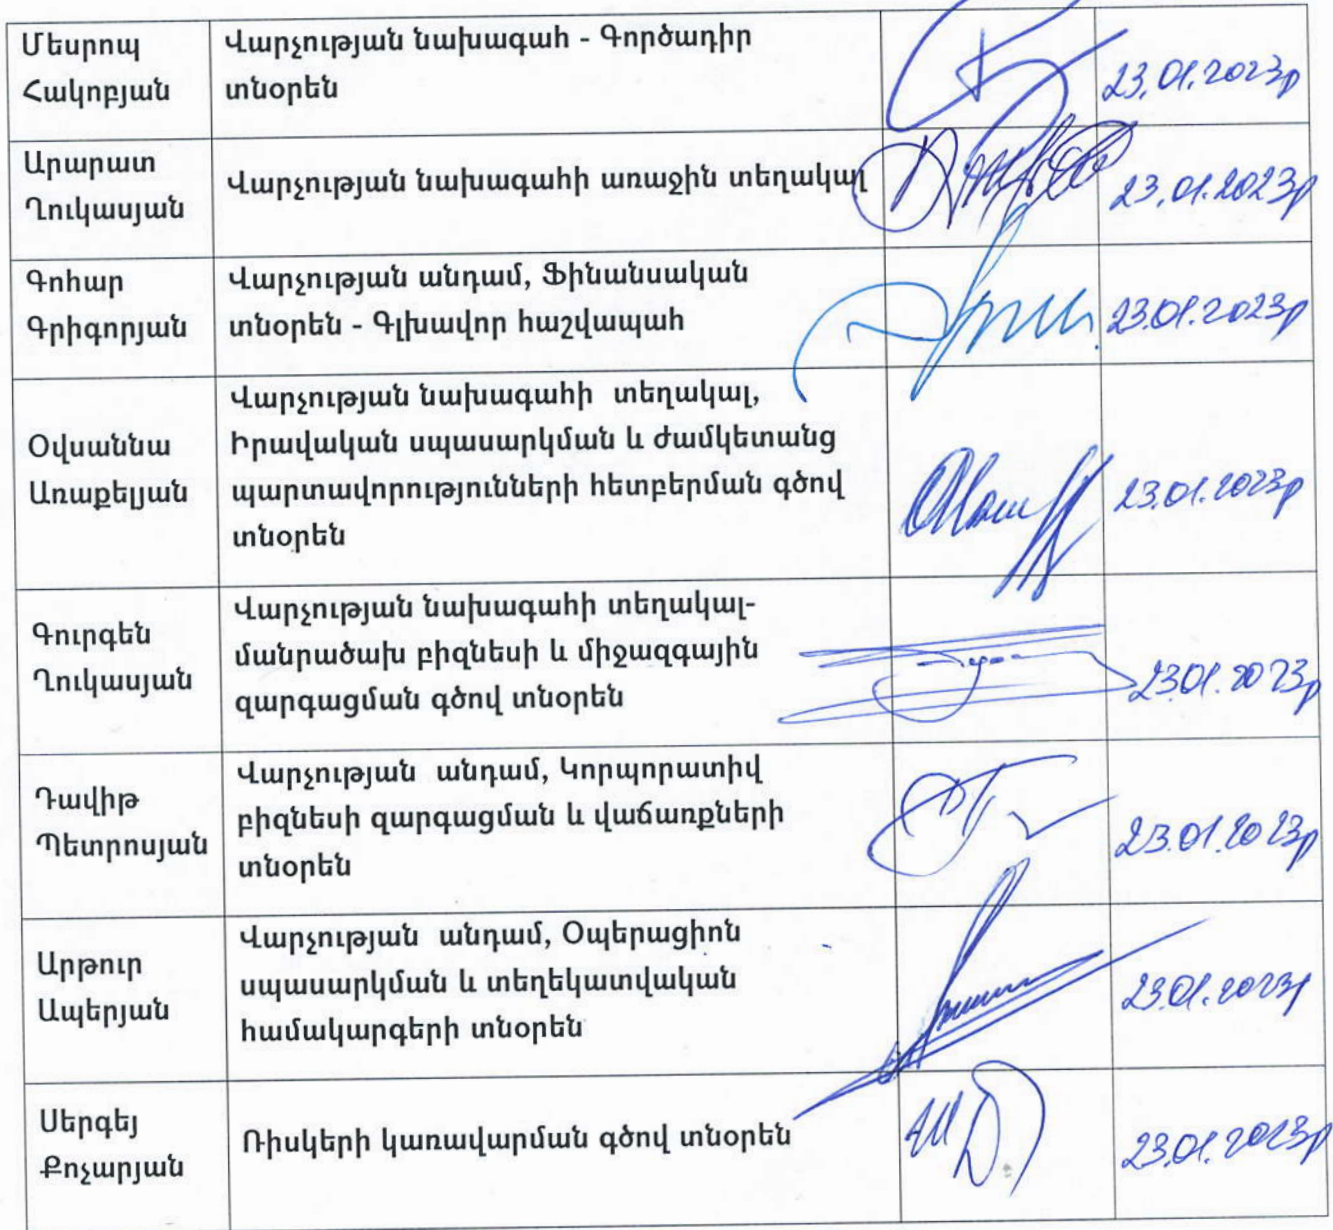 Մեսրոպ
Հակոբյան
Վարչության նախագահ - Գործադիր
տնօրեն
23.01.2023թ
Արարատ
Ղուկասյան
Վարչության նախագահի առաջին տեղակալ
23.01.2023թ
Գոհար
Գրիգորյան
Վարչության անդամ, Ֆինանսական
տնօրեն - Գլխավոր հաշվապահ
23.01.2023թ
Օվսաննա
Առաքելյան
Վարչության նախագահի տեղակալ,
Իրավական սպասարկման և ժամկետանց
պարտավորությունների հետբերման գծով
տնօրեն
23.01.2023թ
Գուրգեն
Ղուկասյան
Վարչության նախագահի տեղակալ-
մանրածախ բիզնեսի և միջազգային
զարգացման գծով տնօրեն
23.01.2023թ
Դավիթ
Պետրոսյան
Վարչության անդամ, Կորպորատիվ
բիզնեսի զարգացման և վաճառքների
տնօրեն
23.01.2023թ
Արթուր
Ապերյան
Վարչության անդամ, Օպերացիոն
սպասարկման և տեղեկատվական
համակարգերի տնօրեն
23.01.2023թ
Սերգեյ
Քոչարյան
Ռիսկերի կառավարման գծով տնօրեն
23.01.2023թ